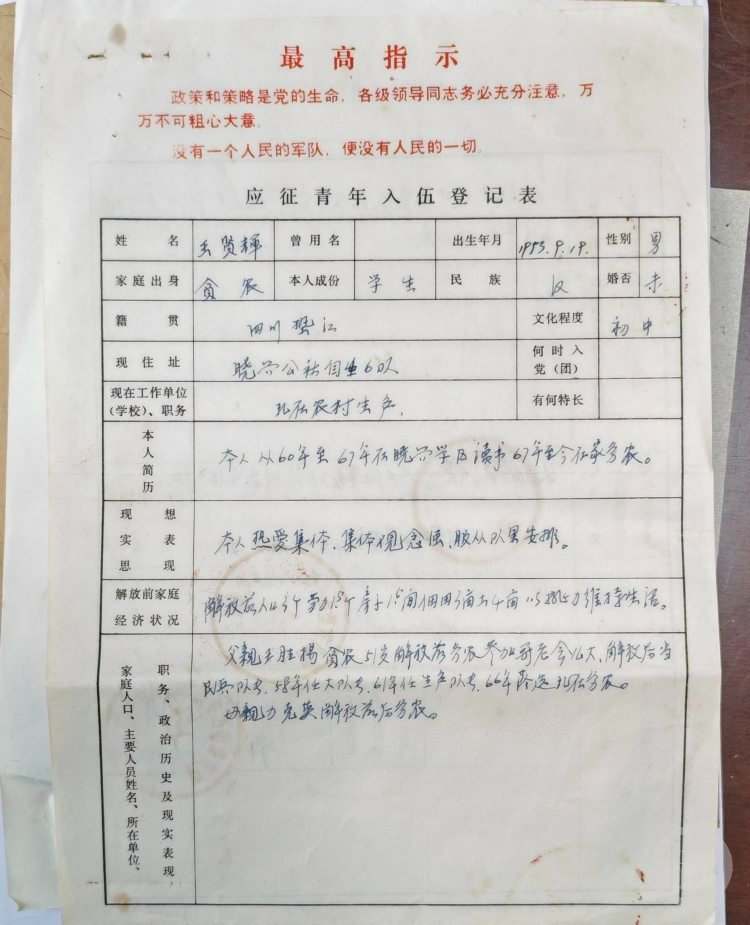 最高指示
政策和策略是党的生命，各级领导同志务必充分注意，万
万不可粗心大意。
没有一个人民的军队，便没有人民的一切。
应征青年入伍登记表
姓名 王贤辉 曾用名 出生年月 1953.9.19. 性别 男
家庭出身 贫农 本人成份 学生 民族 汉 婚否 未
籍贯 四川 江 文化程度 初中
现住址 晓 公社 6队 何时入党（团）
现在工作单位（学校）、职务 现在农村生产， 有何特长
本人简历 本人从60年至67年在晓 学区读书67年至今在家务农。
现实思想表现 本人热爱集体、集体观念强、服从队里安排。
解放前家庭经济状况 解放前人口3个 劳力 个 房子 间佃田 亩土4亩 以 力维持生活。
家庭人口、主要人员姓名、所在单位、职务、政治历史及现实表现
父亲王胜扬贫农51岁解放前务农参加哥老会 大、解放后当
民兵队长、58年任大队长、61年任生产队长、66年落选现在务农。
母亲 解放前后务农。